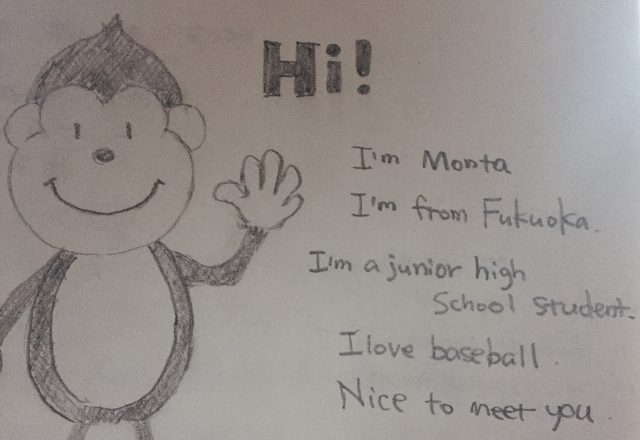 Hi!
I'm Monta
I'm from Fukuoka.
I'm a junior high
School Student.
I love baseball.
Nice to meet you.